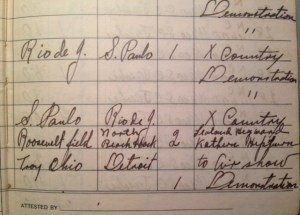 Demonstration
"
Rio de J. S. Paulo 1 X Country
Demonstration
"
S. Paulo Rio de J. X Country
Roosevelt field North Beach 2 Leland Hayward
Katherine Hepburn
Troy Ohio Detroit to air show
1 Demonstration
ATTESTED BY